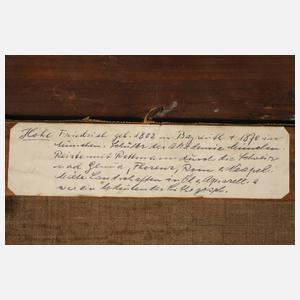 Hohe Friedrich geb. 1802 in Bayreuth + 1870 in
München. Schüler der Akademie München
Reiste mit Rottmann durch die Schweiz
nach Genua, Florenz, Rom u. Neapel.
Malte Landschaften in Öl u. Aquarell. &
war ein bedeutender Lithograph.